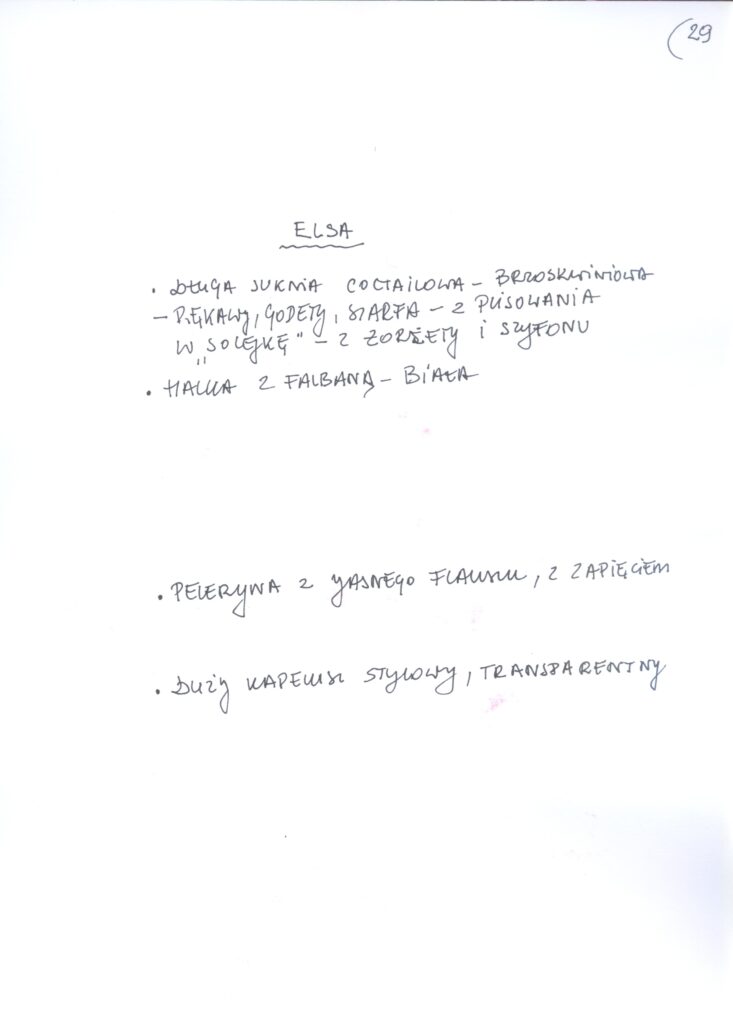 (29
ELSA
• DŁUGA SUKNIA COCTAILOWA – BRZOSKWINIOWA
– RĘKAWY, GODETY, SZARFA – Z PLISOWANIA
W „SOLEJKĘ" – Z ŻORŻETY i SZYFONU
• HALKA Z FALBANĄ – BIAŁA
• PELERYNA Z JASNEGO FLAUSZU, Z ZAPIĘCIEM
• DUŻY KAPELUSZ STYLOWY, TRANSPARENTNY